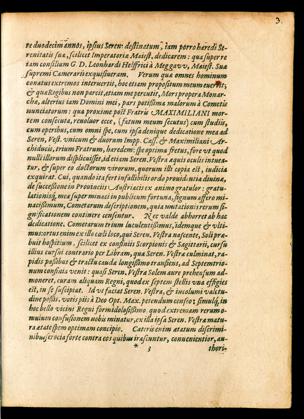 3
re duodecim annos, ipsius Seren: destinatum, iam porro haredi Se-
renitatis suæ, scilicet Imperatoria Maiest. dedicarem: qua super re
iam consilium G. D. Leonhardi Helffrici à Meggavv, Maiest. Suæ
supremi Camerarii exquisueram. Verum quæ omnes hominum
conatus extrinsecus intervertit, hoc etiam propositum meum
& qua Regibus non parcit, etiam me percutit, Mors propera Monar-
chæ, alterius iam Domini mei, pars potissima malorum à Cometis
nunciatorum: qua proxime post Fratris MAXIMILIANI mor-
tem consecuta, revoluor ecce, (fatum meum secutus) cum studiis,
cum operibus, cum omni spe, cum ipsa denique dedicatione mea ad
Seren. Vest. unicum & duorum Impp. Cæss. & Maximiliani Ar-
chiducis, trium Fratrum, haredem: spe optima fretus, fore ut quod
nulli illorum displicuisset, id etiam Seren. Vestra oculis intuea-
tur, & super eo doctorum virorum, quorum illi copia est, iudicia
exquirat. Cui, quandoita fert infallibilis ordo providentia divina,
de successione in Provinciis Austriacis ex animo gratulor: gratu-
lationisq, meæ super munaci in publicum fortuna, signum assero mi-
nacissimum, Cometarum descriptionem, quia mutationis rerum si-
gnificationem continere censentur. Nec valde abhorret ab hac
dedicatione, Cometarum trium luculentissimus, idemque & vlti-
mus: ortus enim ex illo cæli loco, qui Seren. Vestra nascente, Soli præ-
buit hospitium, scilicet ex confiniis Scorpionis & Sagittarii, cursu
citus cursui contrario per Libram, qua Seren. Vestra culminat, ra-
pidis passibus & tractu cauda longissimo transiens, ad Septemtrio-
num confinia venit: quasi Seren. Vestra Solem aure prehensum ad-
moneret, curam aliquam Regni, quod ex septem stellis vna effigiei
est, in se suscipiat. Id vt faciat Seren. Vestra, & incolumi valetu-
dine possit, votis piis à Deo Opt. Max. petendum censeo: simulq, in
hoc bello vicini Regni formidolosissimo, quod extremam rerum o-
mnium confusionem nobis minatur, ex illa ipsa Seren. Vestra matu-
ra ætate spem optimam concipio. Cæteris enim ætatum discrimi-
nibus, certa sorte contra eos quibus irascuntur, convenientior, au-
* 3 thori-